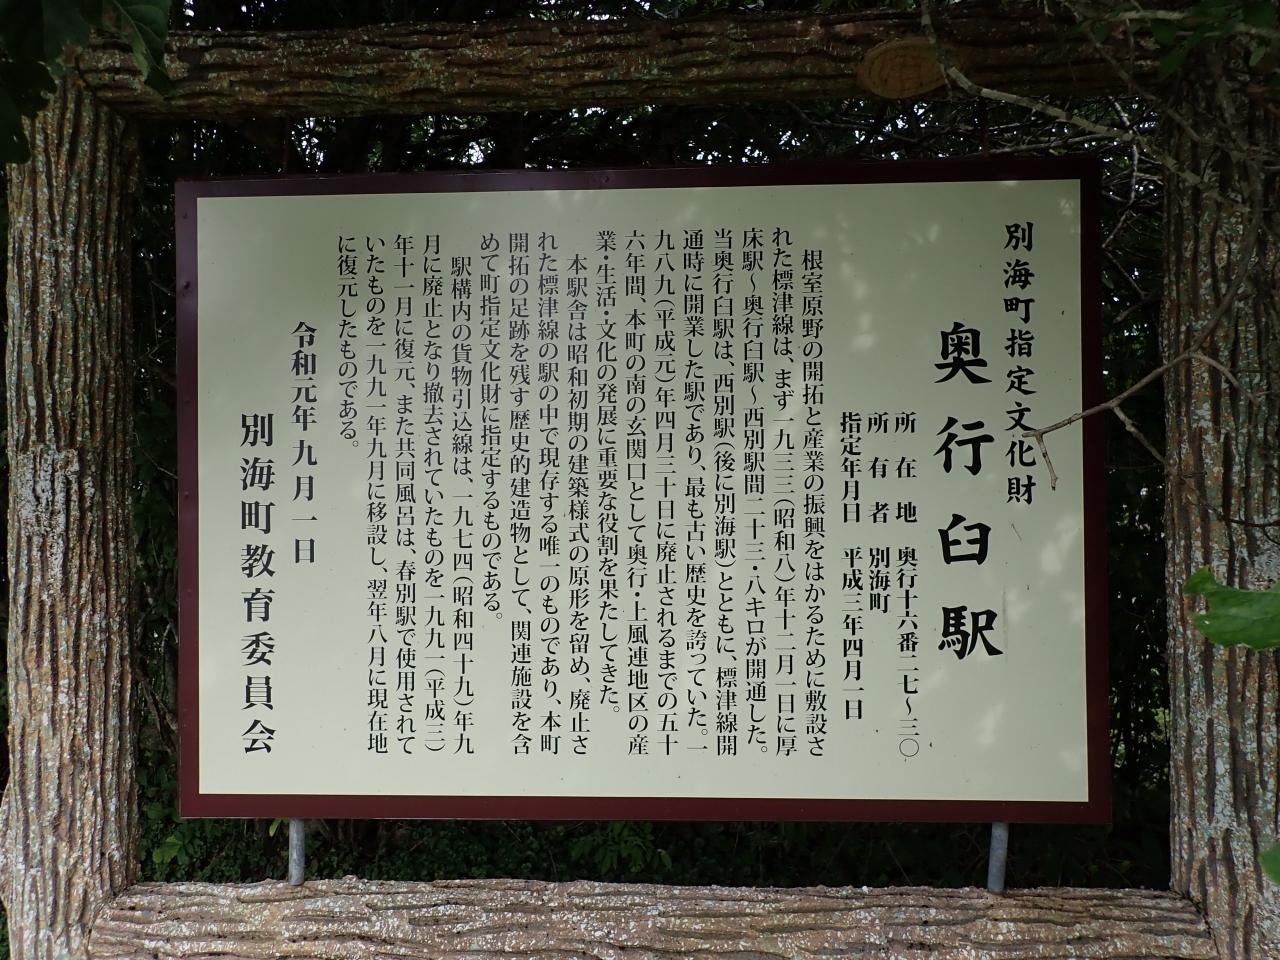 別海町指定文化財
奥行臼駅
所在地　奥行十六番二七～三〇
所有者　別海町
指定年月日　平成三年四月一日
　根室原野の開拓と産業の振興をはかるために敷設さ
れた標津線は、まず一九三三（昭和八）年十二月一日に厚
床駅～奥行臼駅～西別駅間二十三・八キロが開通した。
当奥行臼駅は、西別駅（後に別海駅）とともに、標津線開
通時に開業した駅であり、最も古い歴史を誇っていた。一
九八九（平成元）年四月三十日に廃止されるまでの五十
六年間、本町の南の玄関口として奥行・上風連地区の産
業・生活・文化の発展に重要な役割を果たしてきた。
　本駅舎は昭和初期の建築様式の原形を留め、廃止さ
れた標津線の駅の中で現存する唯一のものであり、本町
開拓の足跡を残す歴史的建造物として、関連施設を含
めて町指定文化財に指定するものである。
　駅構内の貨物引込線は、一九七四（昭和四十九）年九
月に廃止となり撤去されていたものを一九九一（平成三）
年十一月に復元、また共同風呂は、春別駅で使用されて
いたものを一九九一年九月に移設し、翌年八月に現在地
に復元したものである。
令和元年九月一日
別海町教育委員会